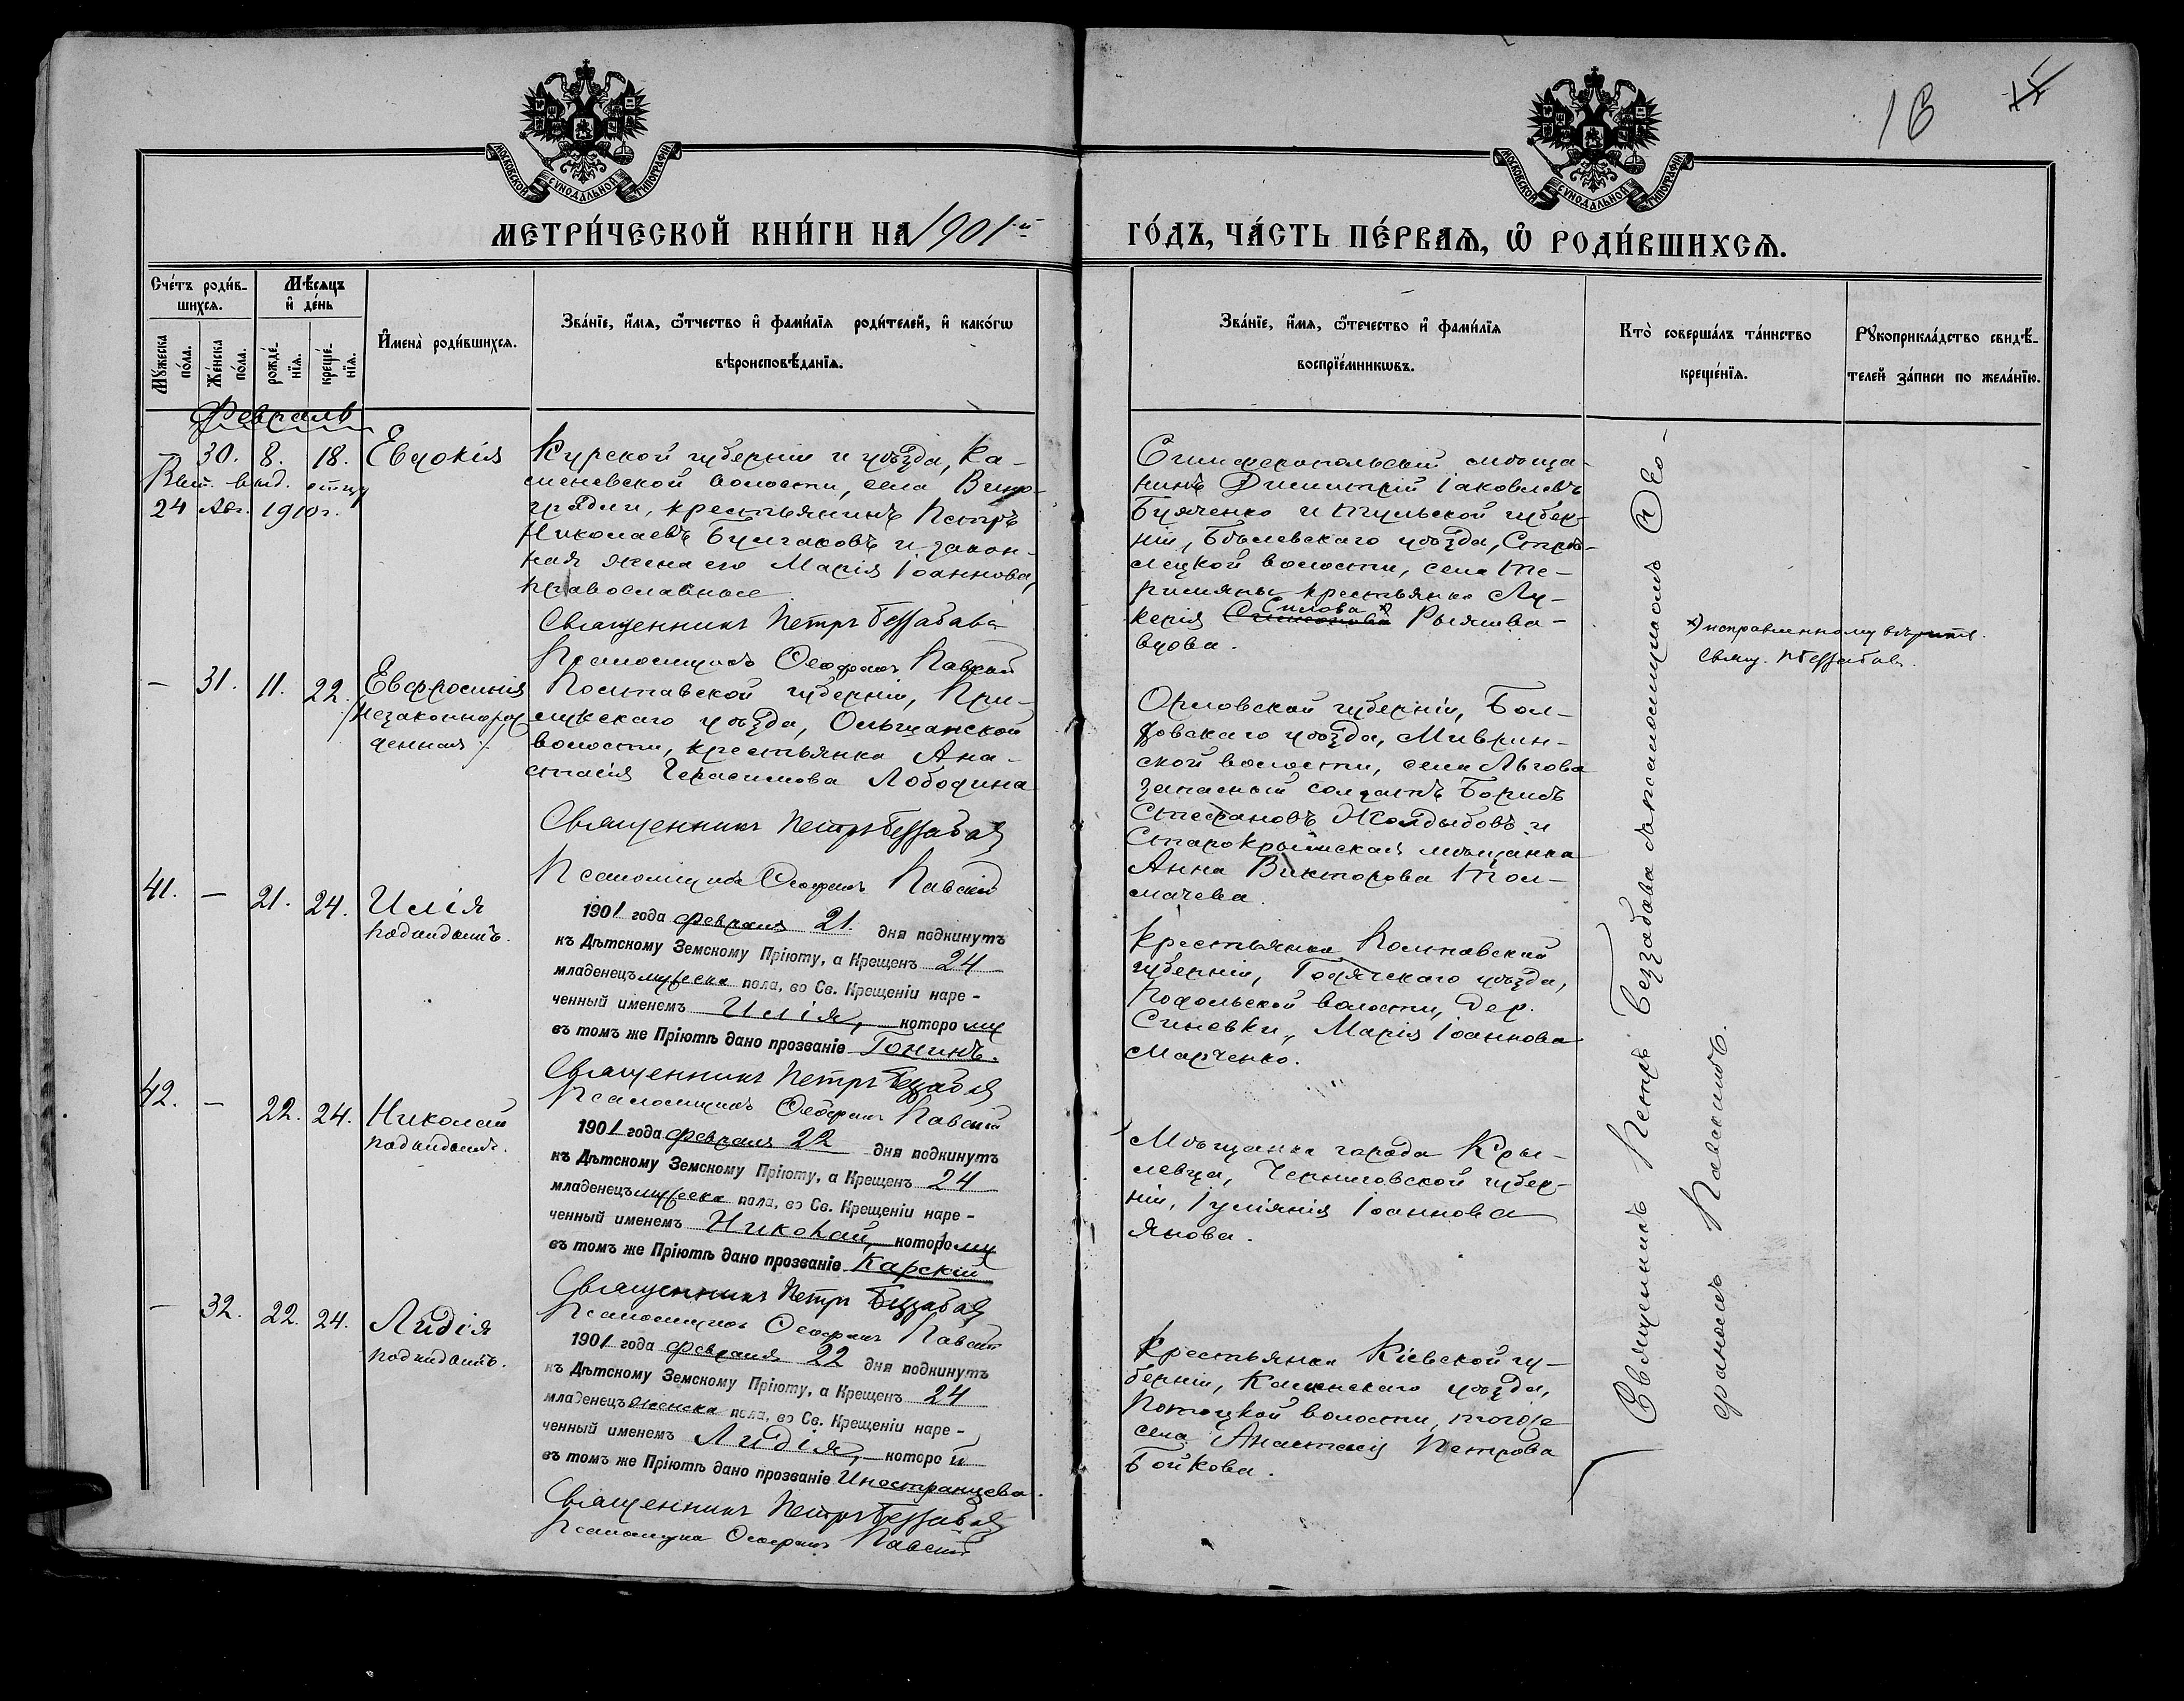 16
МОСКОВСКОЙ СѴНОДАЛЬНОЙ ТИПОГРАФІИ
МОСКОВСКОЙ СѴНОДАЛЬНОЙ ТИПОГРАФІИ
МЕТРИ́ЧЕСКОЙ КНИ́ГИ НА 1901-й
ГО́ДЪ, ЧА́СТЬ ПЕ́РВАѦ, Ѽ РОДИ́ВШИХСѦ.
Сче́тъ роди́в-
шихсѧ.
Мѣ́сѧцъ
и҆ де́нь
Мꙋ́жеска по́ла.
Же́нска по́ла.
рожде́-
нїѧ.
креще́-
нїѧ.
И҆мена̀ роди́вшихсѧ.
Зва́нїе, и҆́мѧ, ѻ҆́тчество и҆ фами́лїѧ роди́телей, и҆ како́гѡ
вѣроисповѣ́данїѧ.
Зва́нїе, и҆́мѧ, ѻ҆те́чество и҆ фами́лїѧ
воспрїе́мникѡвъ.
Кто̀ соверша́лъ та́инство
креще́нїѧ.
Рꙋкоприкла́дство свидѣ́-
телей за́писи по жела́нїю.
Февраль
— 30. 8. 18. Евдокія
Вып. выд. отцу
24 Авг. 1910 г.
Курской губерніи и уѣзда, Ка-
меневской волости, села Вино-
, крестьянинъ Петръ
Николаевъ Булгаковъ и закон-
ная жена его Марія Іоаннова,
православные
Священникъ Петръ Беззабава
Псаломщикъ Ѳеофанъ Павскій
Симферопольскій мѣща-
нинъ Димитрій Іаковлевъ
Буяченко и Тульской губер-
ніи, Бѣлевскаго уѣзда, Стрѣ-
лецкой волости, села
крестьянка Лу-
Силова *)
керія
*) исправленному вѣрить
Свящ. П Беззабава
— 31. 11. 22. Евфросинія
/незаконнорож
денная/.
Полтавской губерніи, При-
лукскаго уѣзда, Ольшанской
волости, крестьянка Ана-
стасія Герасимова Лободина
Священникъ Петръ Беззабава
Псаломщикъ Ѳеофанъ Павскій
Орловской губерніи, Бол-
ховскаго уѣзда,
ской волости, села Льгова
запасный солдатъ Борисъ
Стефановъ и
Старокрымская мѣщанка
Анна Викторова Тол-
мачева.
41. — 21. 24. Илія
подкидышъ.
1901 года Февраля 21. дня подкинутъ
къ Дѣтскому Земскому Пріюту, а Крещенъ 24
младенецъ мужеска пола, во Св. Крещеніи наре-
ченный именемъ Илія, которому
въ томъ же Пріютѣ дано прозваніе Гонинъ.
Священникъ Петръ Беззабава
Псаломщикъ Ѳеофанъ Павскій
Крестьянка Полтавской
губерніи, Гадячскаго уѣзда,
Подольской волости, дер.
Синевки, Марія Іоаннова
Марченко.
42. — 22. 24. Николай
подкидышъ.
1901 года Февраля 22 дня подкинутъ
къ Дѣтскому Земскому Пріюту, а Крещенъ 24
младенецъ мужеска пола, во Св. Крещеніи наре-
ченный именемъ Николай, которому
въ томъ же Пріютѣ дано прозваніе Карскій
Священникъ Петръ Беззабава
Псаломщикъ Ѳеофанъ Павскій
Мѣщанка города Кро-
левца, Черниговской губер-
ніи, Іуліянія Іоаннова
Янова.
— 32. 22. 24. Лидія
подкидышъ.
1901 года Февраля 22 дня подкинутъ
къ Дѣтскому Земскому Пріюту, а Крещенъ 24
младенецъ женска пола, во Св. Крещеніи наре-
ченный именемъ Лидія, которой
въ томъ же Пріютѣ дано прозваніе Иностранцева.
Священникъ Петръ Беззабава
Псаломщикъ Ѳеофанъ Павскій
Крестьянка Кіевской гу-
берніи, Каневскаго уѣзда,
Потоцкой волости, тогоже
села Анастасія Петрова
Бойкова.
Священникъ Петръ Беззабава съ псаломщикомъ Ѳео-
фаномъ Павскимъ.